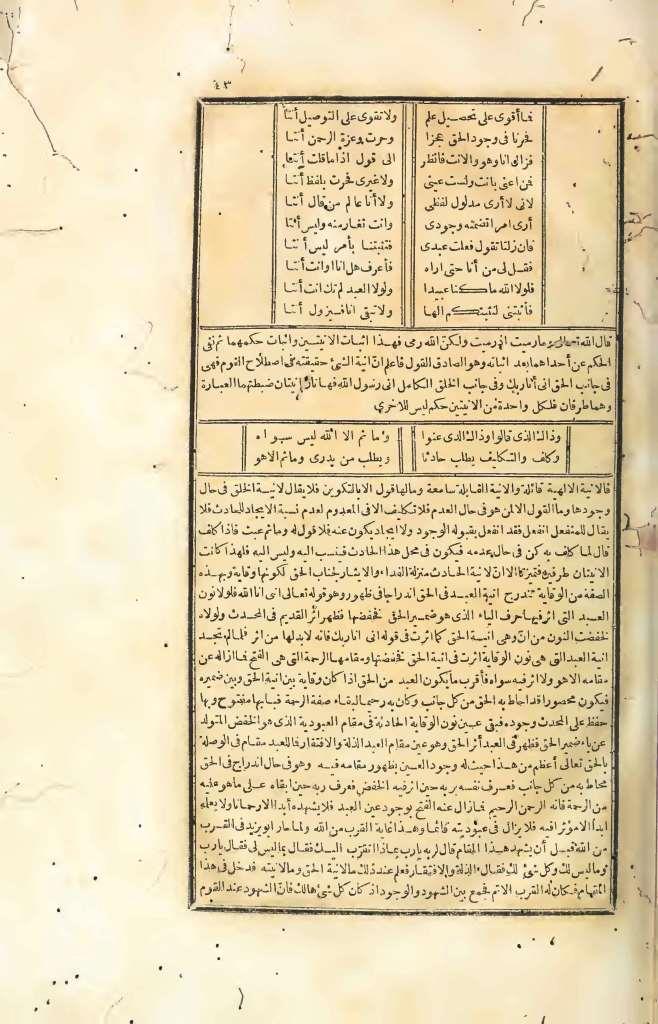 ٤٣
فما أقوى على تحصيل علم ولا تقوى على التوصيل أنتا
فحرنا فى وجود الحق عجزا وحرت وعزة الرحمن أنتا
فزال أنا وهو والانت فانظر الى قول اذا ما قلت أنتا
فمن أعنى بانت ولست عينى ولا غيرى فحرت بلفظ أنتا
لانى لا أرى مدلول لفظى ولا أنا عالم من قال أنتا
أرى أمرا تضمنه وجودى وانت تغار منه وليس أنتا
فان زلنا تقول فعلت عبدى فتثبتنا بأمر ليس أنتا
فقل لى من أنا حتى اراه فأعرف هل انا أو انت أنتا
فلولا الله ما كنا عبيدا ولولا العبد لم تك انت أنتا
فأثبتنى لنثبتكم الها ولا تبقى انا فيزول أنتا
قال الله تعالى وما رميت اذ رميت ولكن الله رمى فهذا اثبات الانيتين واثبات حكمهما ثم نفى
الحكم عن أحداهما بعد اثباته وهو الصادق القول فاعلم ان انية الشئ حقيقته فى اصطلاح القوم فهى
فى جانب الحق انى أنا ربك وفى جانب الخلق الكامل انى رسول الله فهاتان انيتان ضبطتهما العبارة
وهما طرفان فلكل واحدة من الانيتين حكم ليس للاخرى
وذاك الذى قالوا وذاك الذى عنوا وما ثم الا الله ليس سواه
وكلف والتكليف يطلب حادثا ويطلب من يدرى وما ثم الا هو
فالانية الالهية قائلة والانية القابلة سامعة وما لها قول الا بالتكوين فلا يقال لانية الخلق فى حال
وجودها وما القول الا لمن هو فى حال العدم فلا تكليف الا فى المعدوم لعدم نسبة الايجاد للحادث فلا
يقال للمنفعل انفعل فقد انفعل بقبوله الوجود ولا ايجاد يكون عنه فلا قول له وما ثم عبث فاذا كلف
قال لما كلف به كن فى حال عدمه فيكون فى محل هذا الحادث فينسب اليه وليس اليه فلهذا كانت
الانيتان طرفين فتميزتا الا ان لانية الحادث منزلة الفداء والايثار لجناب الحق لكونها وقاية وبهذه
الصفة من الوقاية تندرج انية العبد فى الحق اندراجا فى ظهور وهو قوله تعالى انى أنا الله فلولا نون
العبد التى اثر فيها حرف الياء الذى هو ضمير الحق فخفضها فظهر اثر القديم فى المحدث ولولاه
لخفضت النون من ان وهى انية الحق كما اثرت فى قوله انى انا ربك فانه لا بد لها من اثر فلما لم تجد
انية العبد التى هى نون الوقاية اثرت فى انية الحق فخفضتها ومقامها الرحمة التى هى الفتح فما ازاله عن
مقامه الا هو ولا اثر فيه سواه فأقرب ما يكون العبد من الحق اذا كان وقاية بين انية الحق وبين ضميره
فيكون محصورا قد احاط به الحق من كل جانب وكان به رحيما لبقاء صفة الرحمة فبابها مفتوح وبها
حفظ على المحدث وجوده فبقى عين نون الوقاية الحادثة فى مقام العبودية الذى هو الخفض المتولد
عن ياء ضمير الحق فظهر فى العبد أثر الحق وهو عين مقام العبد الذلة والافتقار فما للعبد مقام فى الوصلة
بالحق تعالى أعظم من هذا حيث له وجود العين بظهور مقامه فيه وهو فى حال اندراج فى الحق
محاط به من كل جانب فعرف نفسه بربه حين اثر فيه الخفض فعرف ربه حين ابقاه على ما هو عليه
من الرحمة فانه الرحمن الرحيم فما زال عنه الفتح بوجود عين العبد فلا يشهده أبدا الا رحمانا ولا يعلمه
ابدا الا مؤثرا فيه فلا يزال فى عبوديته قائما وهذا غاية القرب من الله ولما حار ابو يزيد فى القرب
من الله قبل أن يشهد هذا المقام قال لربه يا رب بماذا اتقرب اليك فقال بما ليس لى فقال يا رب
وما ليس لك وكل شئ لك فقال الذلة والافتقار فعلم عند ذلك ما لانية الحق وما لانيته فدخل فى هذا
المقام فكان له القرب الاتم فجمع بين الشهود والوجود اذ كان كل شئ هالك فان الشهود عند القوم